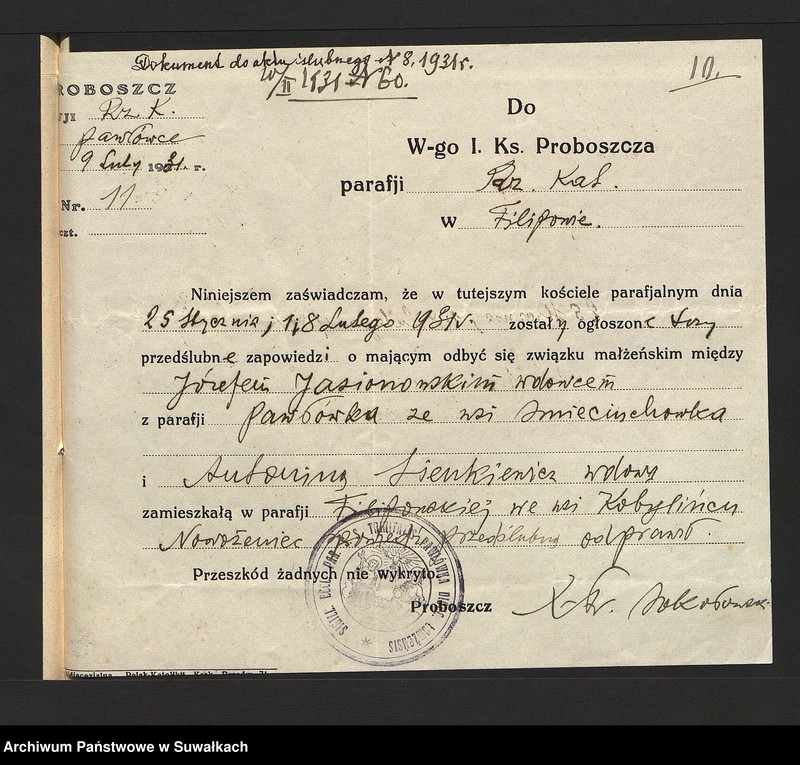 Dokument do aktu ślubnego N 8. 1931 r.
10/II 1931 N 60.
10.
ROBOSZCZ
fji Rz. K.
Pawłówce
9 Luty 1931. r.
Nr. 11
czt.
Do
W-go I. Ks. Proboszcza
parafji Rz. Kat.
w Filipowie.
Niniejszem zaświadczam, że w tutejszym kościele parafjalnym dnia
25 Stycznia, i 1, 8 Lutego 931 r. zostały ogłoszone trzy
przedślubne zapowiedzi o mającym odbyć się związku małżeńskim między
Józefem Jasionowskim wdowcem
z parafji Pawłówka ze wsi Śmieciuchówka
i Antoniną Sienkiewicz wdową
zamieszkałą w parafji Filipowskiej we wsi Kobylińcu
Nowożeniec spowiedź przedślubną odprawił.
Przeszkód żadnych nie wykryto.
Proboszcz X. Sokołowski
SIGILL. ECCL. PAR. S.S. TRINITATIS PAWŁÓWKA DIOEC. ŁOMZENSIS